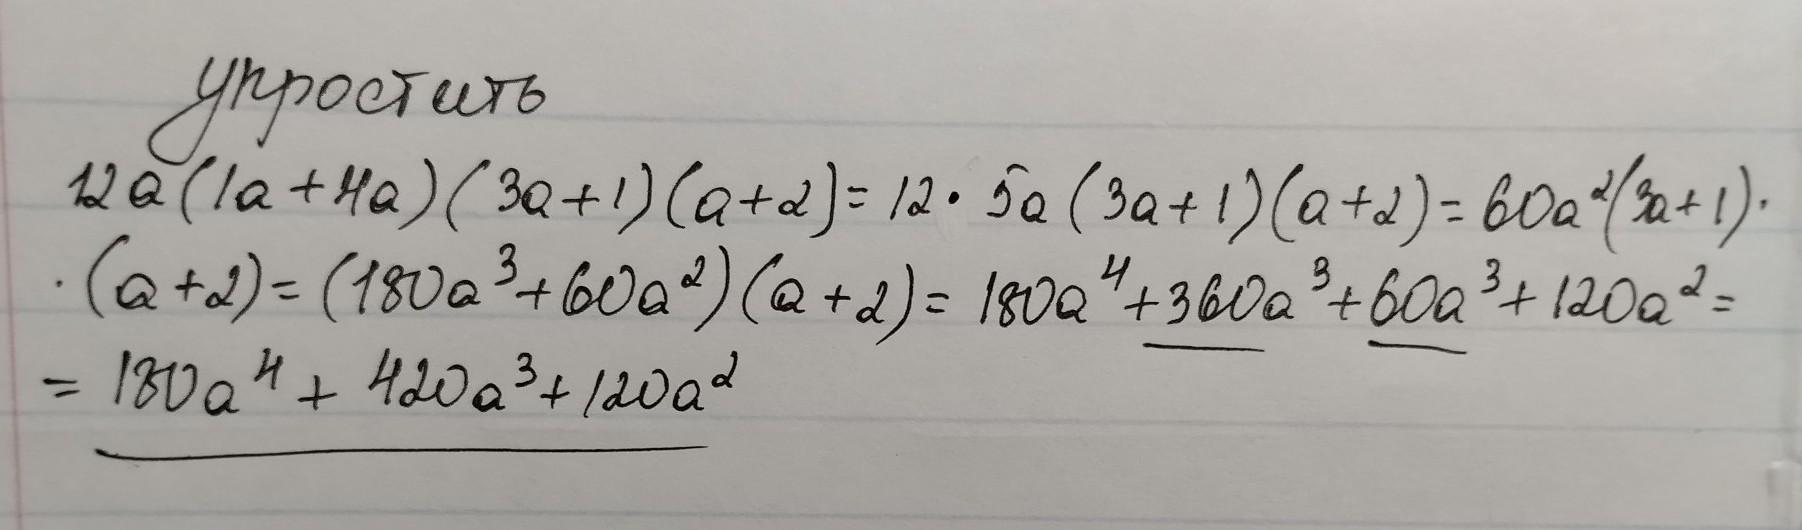 упростить
12a(1a+4a)(3a+1)(a+2)=12·5a(3a+1)(a+2)=60a²(3a+1)·
·(a+2)=(180a³+60a²)(a+2)=180a⁴+360a³+60a³+120a²=
=180a⁴+420a³+120a²